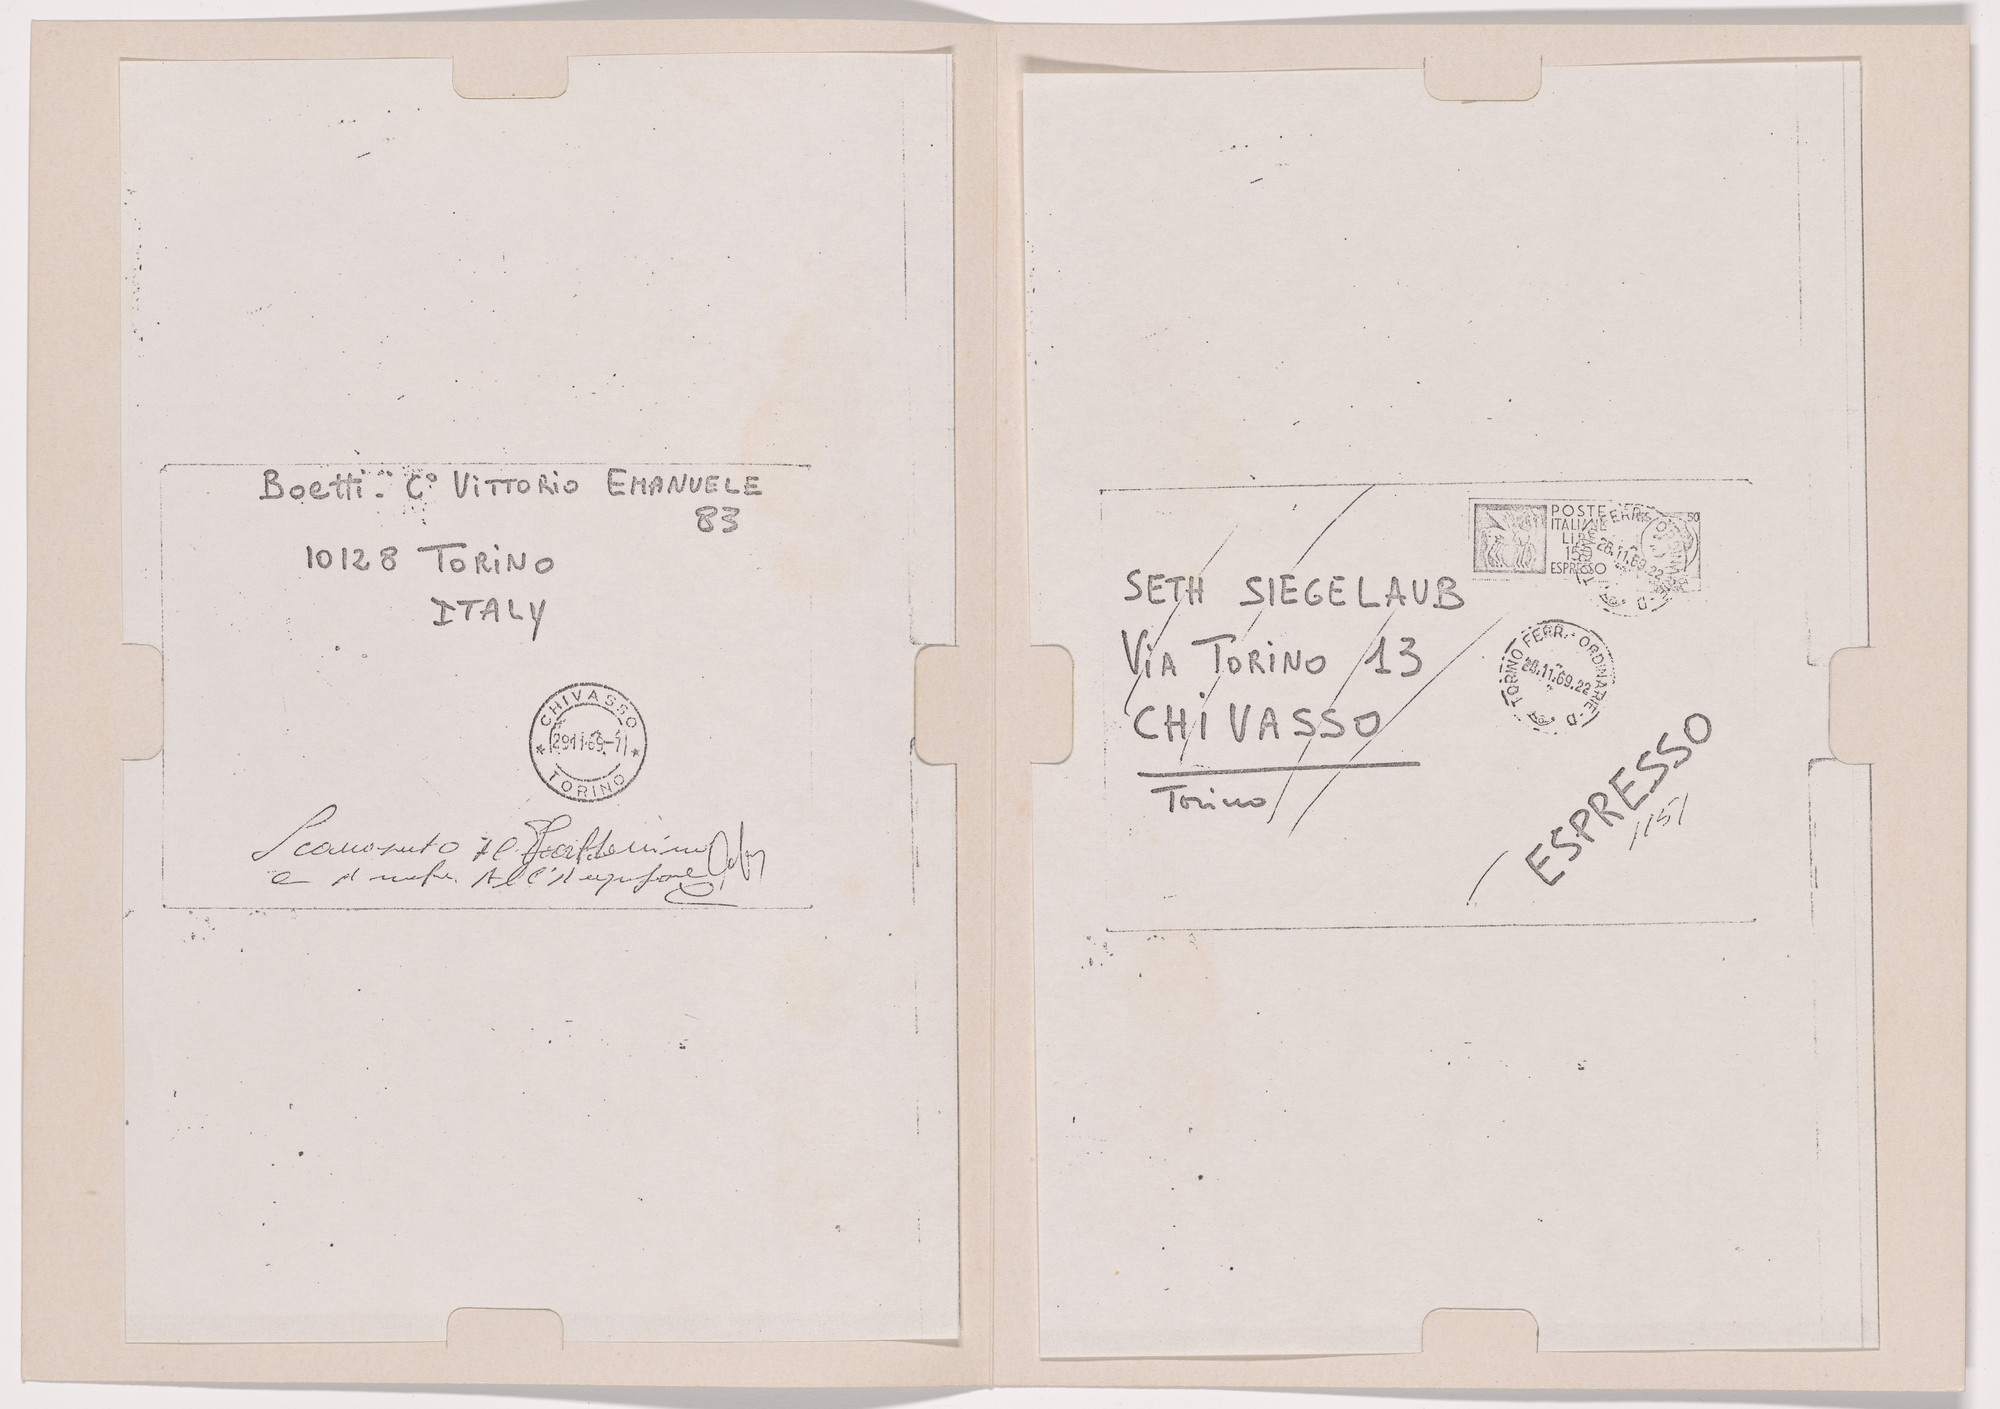 Boetti - C° VITTORIO EMANUELE
83
10128 TORINO
ITALY
CHIVASSO
29 11 69-11
TORINO
Sconosciuto il
e
SETH SIEGELAUB
VIA TORINO 13
CHIVASSO
Torino
POSTE
ITALIANE
LIRE
150
ESPRESSO
50
28.11.69.22
TORINO FERR. ORDINARIE - D
28.11.69.22
ESPRESSO